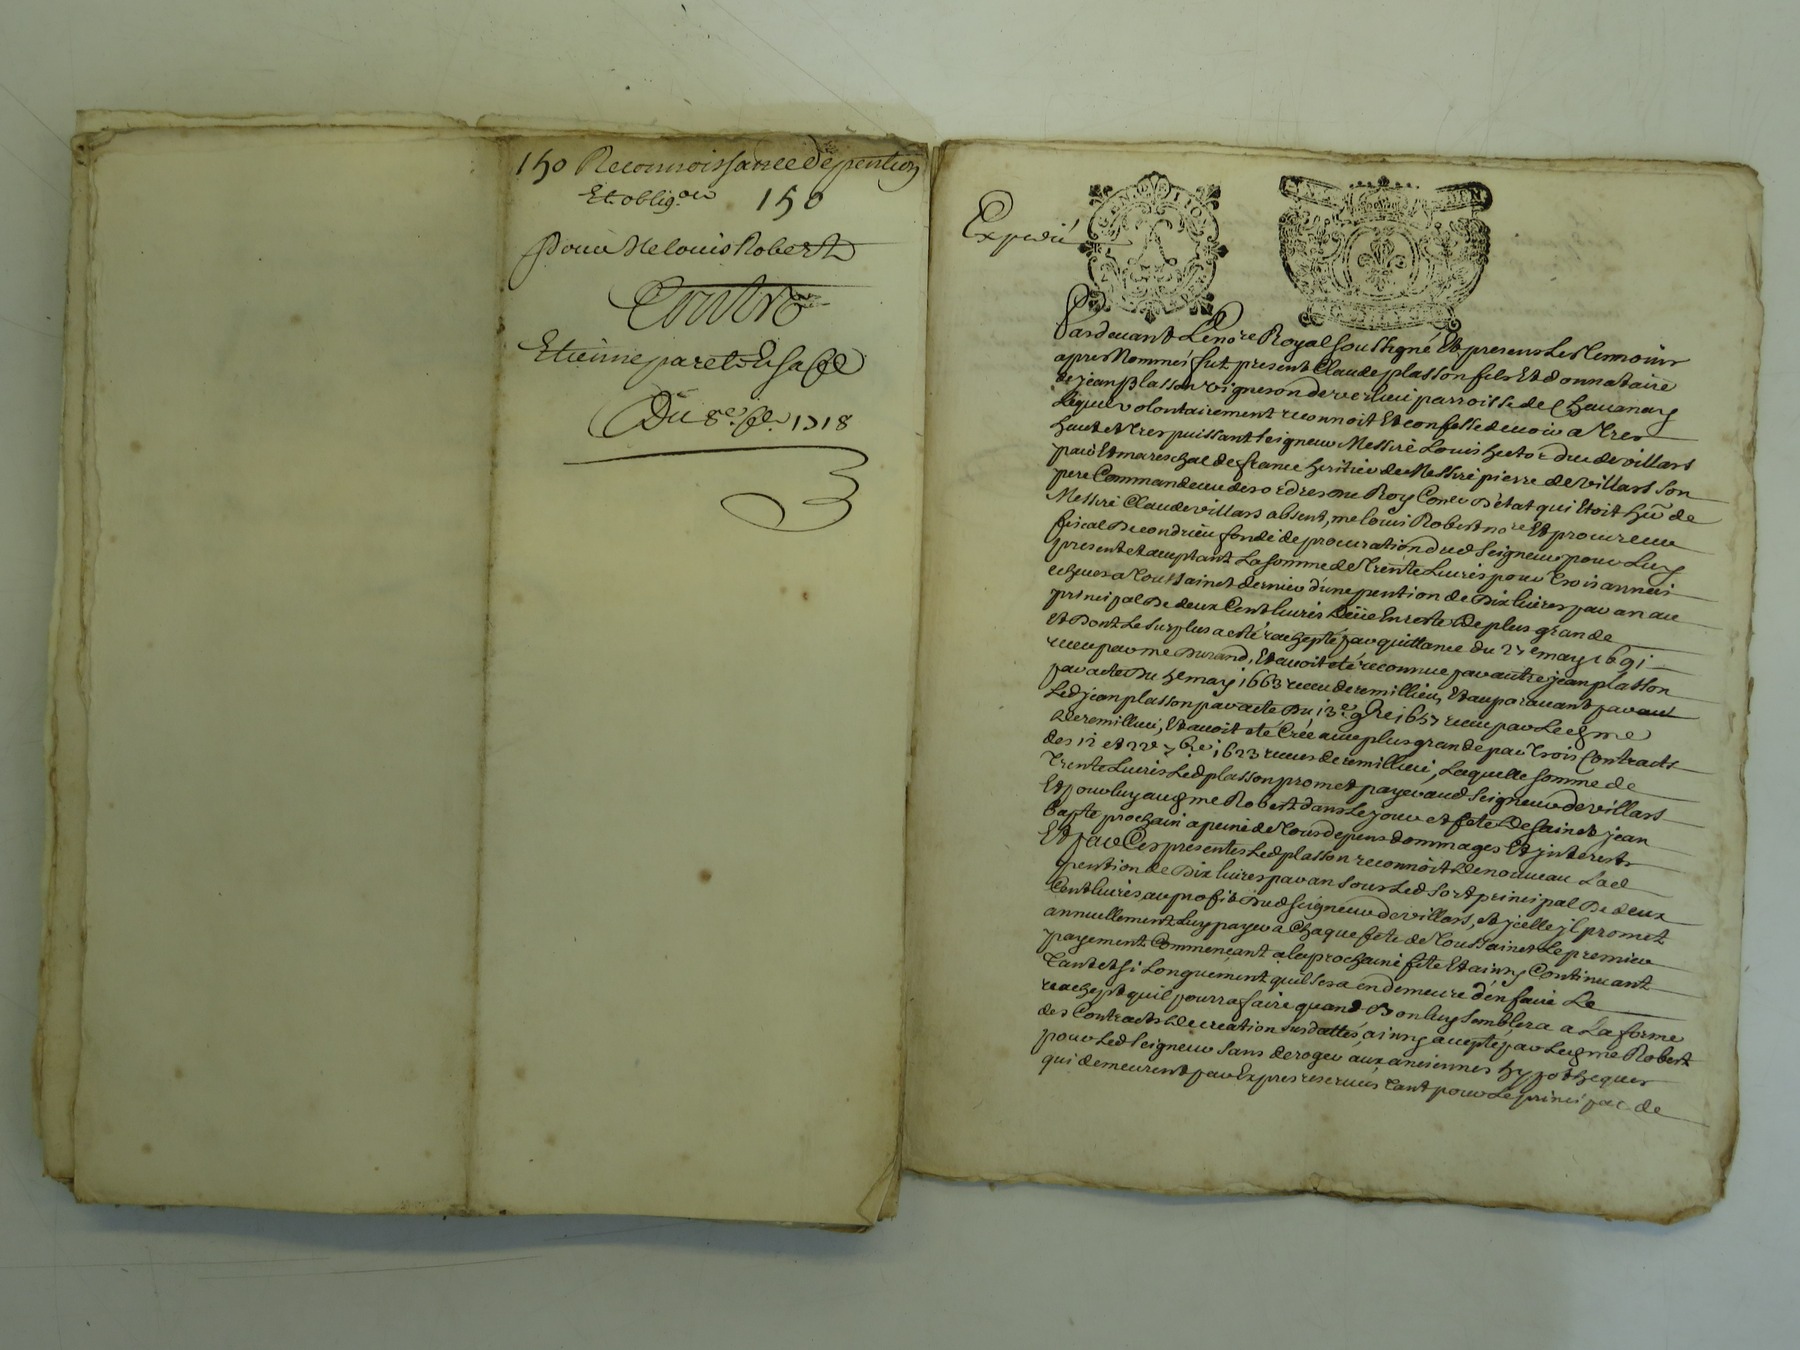 150 Reconnoissance de pention
Et oblig.on 150
Pour Me louis Robert
Contre
Etienne paret Et sa fe
Du 8e 1718
Expedié
GENERALITE LION
Pardevant Le no.re Royal soussigné Et presens Les Temoins
apres Nommés fut present Claude plasson fils Et donnataire
de jean Blasson vigneron de verlieu parroisse de Chauanay
Lequel volontairement reconnoit Et confesse deuoir a Tres
haut et Tres puissant seigneur Messire Louis hector duc de villars
pair Et mareschal de france heritier de Messire pierre de villars son
pere Commandeur des ordres du Roy Coner D'état qui Etoit her de
Messire Claude villars absent, me louis Robert no.re Et procureur
fiscal De condrieu fondé de procuration dud seigneur pour Luy
present et acceptant La somme de Trente Liures pour Trois années
echues a Toussainct dernier d'une pention de Dix liures par an au
principal De deux Cent liures Deüe En reste de plus grande
Et Dont Le surplus a esté rachepté par quittance du 27e may 1691
receu par me Durand, Et auoit été reconnue par autre jean plasson
par acte Du 5e may 1663 receu deremillieu, Et auparauant par un
Led jean plasson par acte Du 13e 9bre 1657 receu par Led me
deremillieu, Et auoit été Créé auec plus grande par Trois Contracts
des 12 et 22e 7bre 1623 receus deremillieu, Laquelle somme de
Trente Liures Led plasson promet payer aud seigneur de villars
Et pour luy aud me Robert dans Le jour et fete de sainct jean
Bapte prochain a peine de Tous depens dommages Et jnterests
Et par Ces presentes Led plasson reconnoit de nouveau Lad
pention de Dix liures par an sous Led sort principal De deux
Cent liures au profit Dud seigneur de villars, et jcelle jl promet
annuellement Luy payer a Chaque fete de Toussainct Le premier
payement Commencant a la prochaine fete Et ainsy Continuant
Tant et si Longuement quil sera en demeure d'en faire Le
rachept quil pourra faire quand Bon luy semblera a La forme
des Contracts de creation susdattés, ainsy accepté par Led me Robert
pour Led seigneur sans deroger aux anciennes hypotheques
qui demeurent par Expres reseruées Tant pour Le principal de